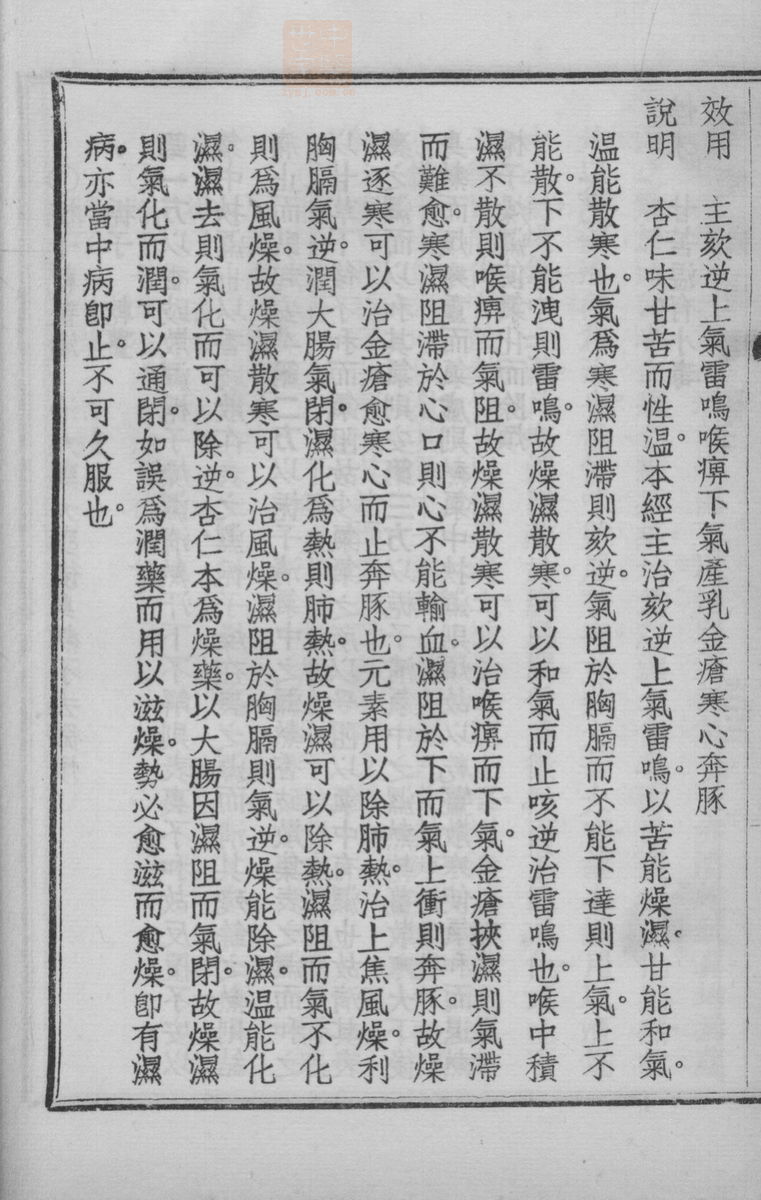 效用　主欬逆上氣雷鳴喉痹下氣產乳金瘡寒心奔豚
說明　杏仁味甘苦而性溫。本經主治欬逆上氣雷鳴。以苦能燥濕。甘能和氣。
溫能散寒也。氣爲寒濕阻滯則欬逆。氣阻於胸膈而不能下達則上氣。上不
能散。下不能洩則雷鳴。故燥濕散寒。可以和氣而止咳逆治雷鳴也。喉中積
濕不散則喉痹而氣阻。故燥濕散寒可以治喉痹而下氣。金瘡挾濕則氣滯
而難愈。寒濕阻滯於心口則心不能輸血。濕阻於下而氣上衝則奔豚。故燥
濕逐寒可以治金瘡愈寒心而止奔豚也。元素用以除肺熱。治上焦風燥。利
胸膈氣逆。潤大腸氣閉。濕化爲熱則肺熱。故燥濕可以除熱。濕阻而氣不化
則爲風燥。故燥濕散寒可以治風燥。濕阻於胸膈則氣逆。燥能除濕。溫能化
濕。濕去則氣化而可以除逆。杏仁本爲燥藥。以大腸因濕阻而氣閉。故燥濕
則氣化而潤。可以通閉。如誤爲潤藥而用以滋燥。勢必愈滋而愈燥。卽有濕
病。亦當中病卽止。不可久服也。